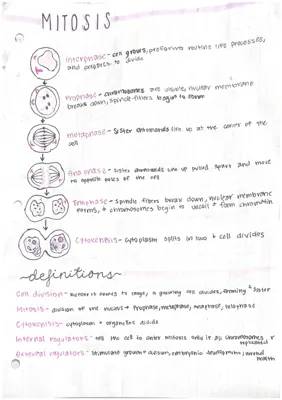 MITOSIS
Interphase - cell grows, performs routine life processes,
and prepares to divide
Prophase - chromosomes are visible, nuclear membrane
breaks down, spindle fibers begin to form
metaphase - Sister chromatids line up at the center of the
cell
Anaphase - sister chromatids are pulled apart and move
to opposite poles of the cell
Telophase - Spindle fibers break down, nuclear membrane
forms, + chromosomes begin to uncoil + form chromatin
Cytokinesis - cytoplasm splits in two + cell divides
definitions
Cell division - before it comes to large, a growing cell divides, forming 2 sister
Mitosis - division of the nucleus → Prophase, metaphase, anaphase, telophase
Cytokinesis - cytoplasm + organelles divide
Internal regulators - tell the cell to enter mitosis only if all chromosomes r
replicated
External regulators - stimulate growth + division, embryonic development,
health